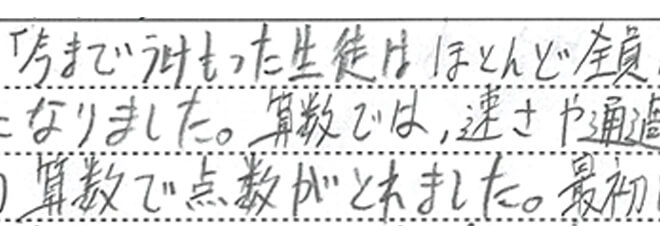 「今までうけもった生徒はほとんど全員
になりました。算数では,速さや通過
算数で点数がとれました。最初